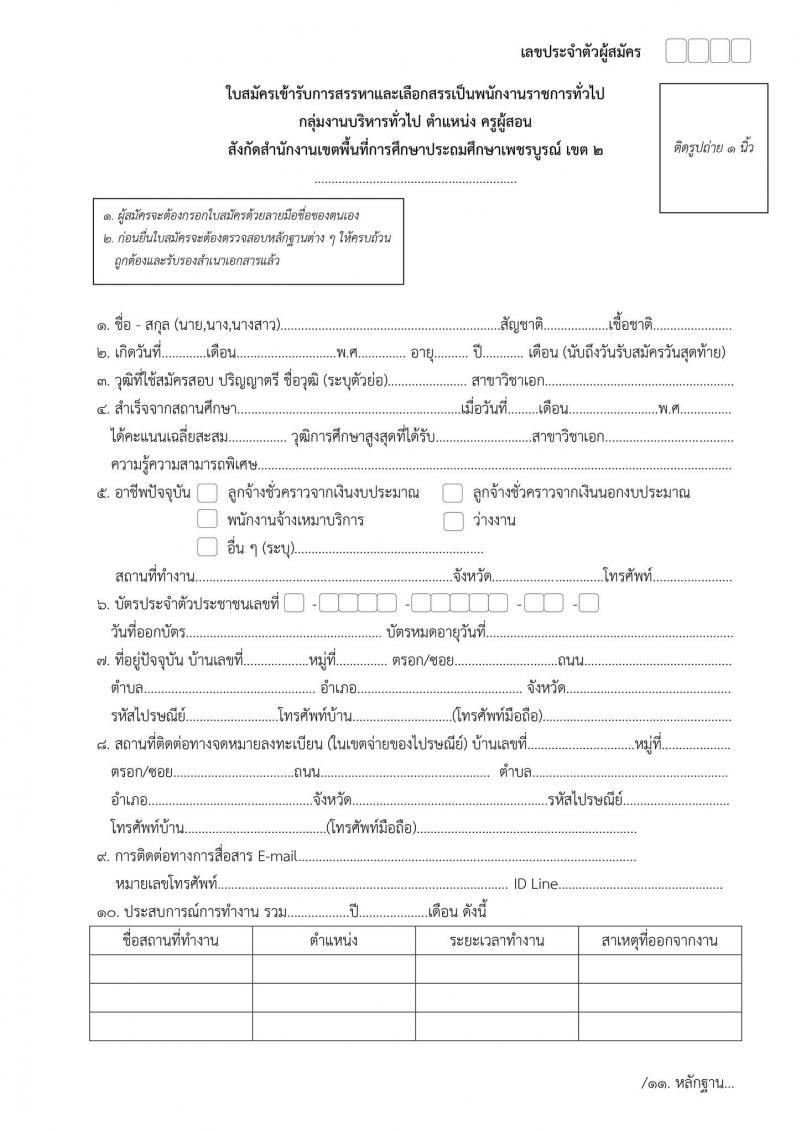 เลขประจำตัวผู้สมัคร
ใบสมัครเข้ารับการสรรหาและเลือกสรรเป็นพนักงานราชการทั่วไป
กลุ่มงานบริหารทั่วไป ตำแหน่ง ครูผู้สอน
สังกัดสำนักงานเขตพื้นที่การศึกษาประถมศึกษาเพชรบูรณ์ เขต ๒
...........................................................
ติดรูปถ่าย ๑ นิ้ว
๑. ผู้สมัครจะต้องกรอกใบสมัครด้วยลายมือชื่อของตนเอง
๒. ก่อนยื่นใบสมัครจะต้องตรวจสอบหลักฐานต่าง ๆ ให้ครบถ้วน
ถูกต้องและรับรองสำเนาเอกสารแล้ว
๑. ชื่อ - สกุล (นาย,นาง,นางสาว)................................................................สัญชาติ...................เชื้อชาติ.......................
๒. เกิดวันที่.............เดือน.............................พ.ศ.............. อายุ.......... ปี............ เดือน (นับถึงวันรับสมัครวันสุดท้าย)
๓. วุฒิที่ใช้สมัครสอบ ปริญญาตรี ชื่อวุฒิ (ระบุตัวย่อ)....................... สาขาวิชาเอก.......................................................
๔. สำเร็จจากสถานศึกษา.................................................................เมื่อวันที่.........เดือน..........................พ.ศ...............
ได้คะแนนเฉลี่ยสะสม................. วุฒิการศึกษาสูงสุดที่ได้รับ............................สาขาวิชาเอก.....................................
ความรู้ความสามารถพิเศษ..........................................................................................................................................
๕. อาชีพปัจจุบัน ลูกจ้างชั่วคราวจากเงินงบประมาณ ลูกจ้างชั่วคราวจากเงินนอกงบประมาณ
พนักงานจ้างเหมาบริการ ว่างงาน
อื่น ๆ (ระบุ).......................................................
สถานที่ทำงาน...........................................................................จังหวัด................................โทรศัพท์.......................
๖. บัตรประจำตัวประชาชนเลขที่ - - - -
วันที่ออกบัตร......................................................... บัตรหมดอายุวันที่........................................................................
๗. ที่อยู่ปัจจุบัน บ้านเลขที่...................หมู่ที่............... ตรอก/ซอย..............................ถนน...........................................
ตำบล.................................................. อำเภอ................................................ จังหวัด................................................
รหัสไปรษณีย์...........................โทรศัพท์บ้าน.............................(โทรศัพท์มือถือ).......................................................
๘. สถานที่ติดต่อทางจดหมายลงทะเบียน (ในเขตจ่ายของไปรษณีย์) บ้านเลขที่...............................หมู่ที่....................
ตรอก/ซอย...................................ถนน................................................. ตำบล.........................................................
อำเภอ................................................จังหวัด.........................................................รหัสไปรษณีย์...............................
โทรศัพท์บ้าน.........................................(โทรศัพท์มือถือ)................................................................
๙. การติดต่อทางการสื่อสาร E-mail...................................................................................................
หมายเลขโทรศัพท์..................................................................................... ID Line................................................
๑๐. ประสบการณ์การทำงาน รวม..................ปี....................เดือน ดังนี้
ชื่อสถานที่ทำงาน ตำแหน่ง ระยะเวลาทำงาน สาเหตุที่ออกจากงาน
/๑๑. หลักฐาน...